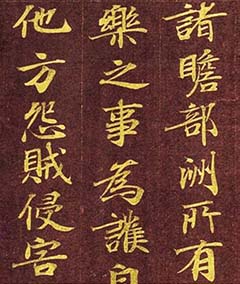 諸瞻部洲所有
樂之事為護自
他方怨賊侵害